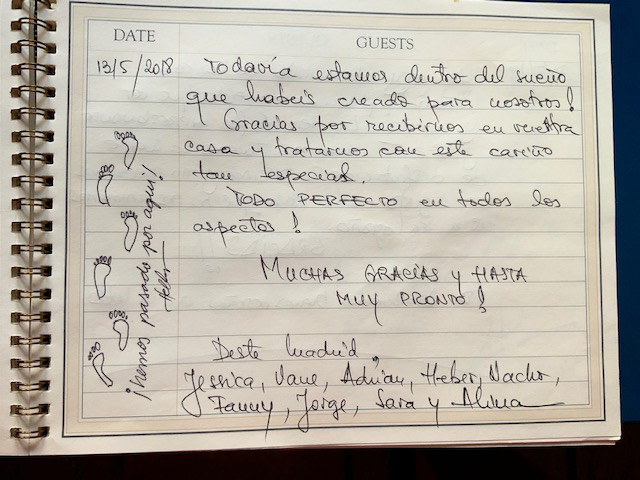 DATE
GUESTS
13/5/2018
Todavía estamos dentro del sueño
que habeis creado para nosotros!
Gracias por recibirnos en vuestra
casa y tratarnos con este cariño
tan especial.
TODO PERFECTO en todos los
aspectos!
MUCHAS GRACIAS y HASTA
MUY PRONTO!
Deste Madrid,
Jessica, Vane, Adrián, Heber, Nacho,
Fanny, Jorge, Sara y Alima
¡hemos pasado por aquí!